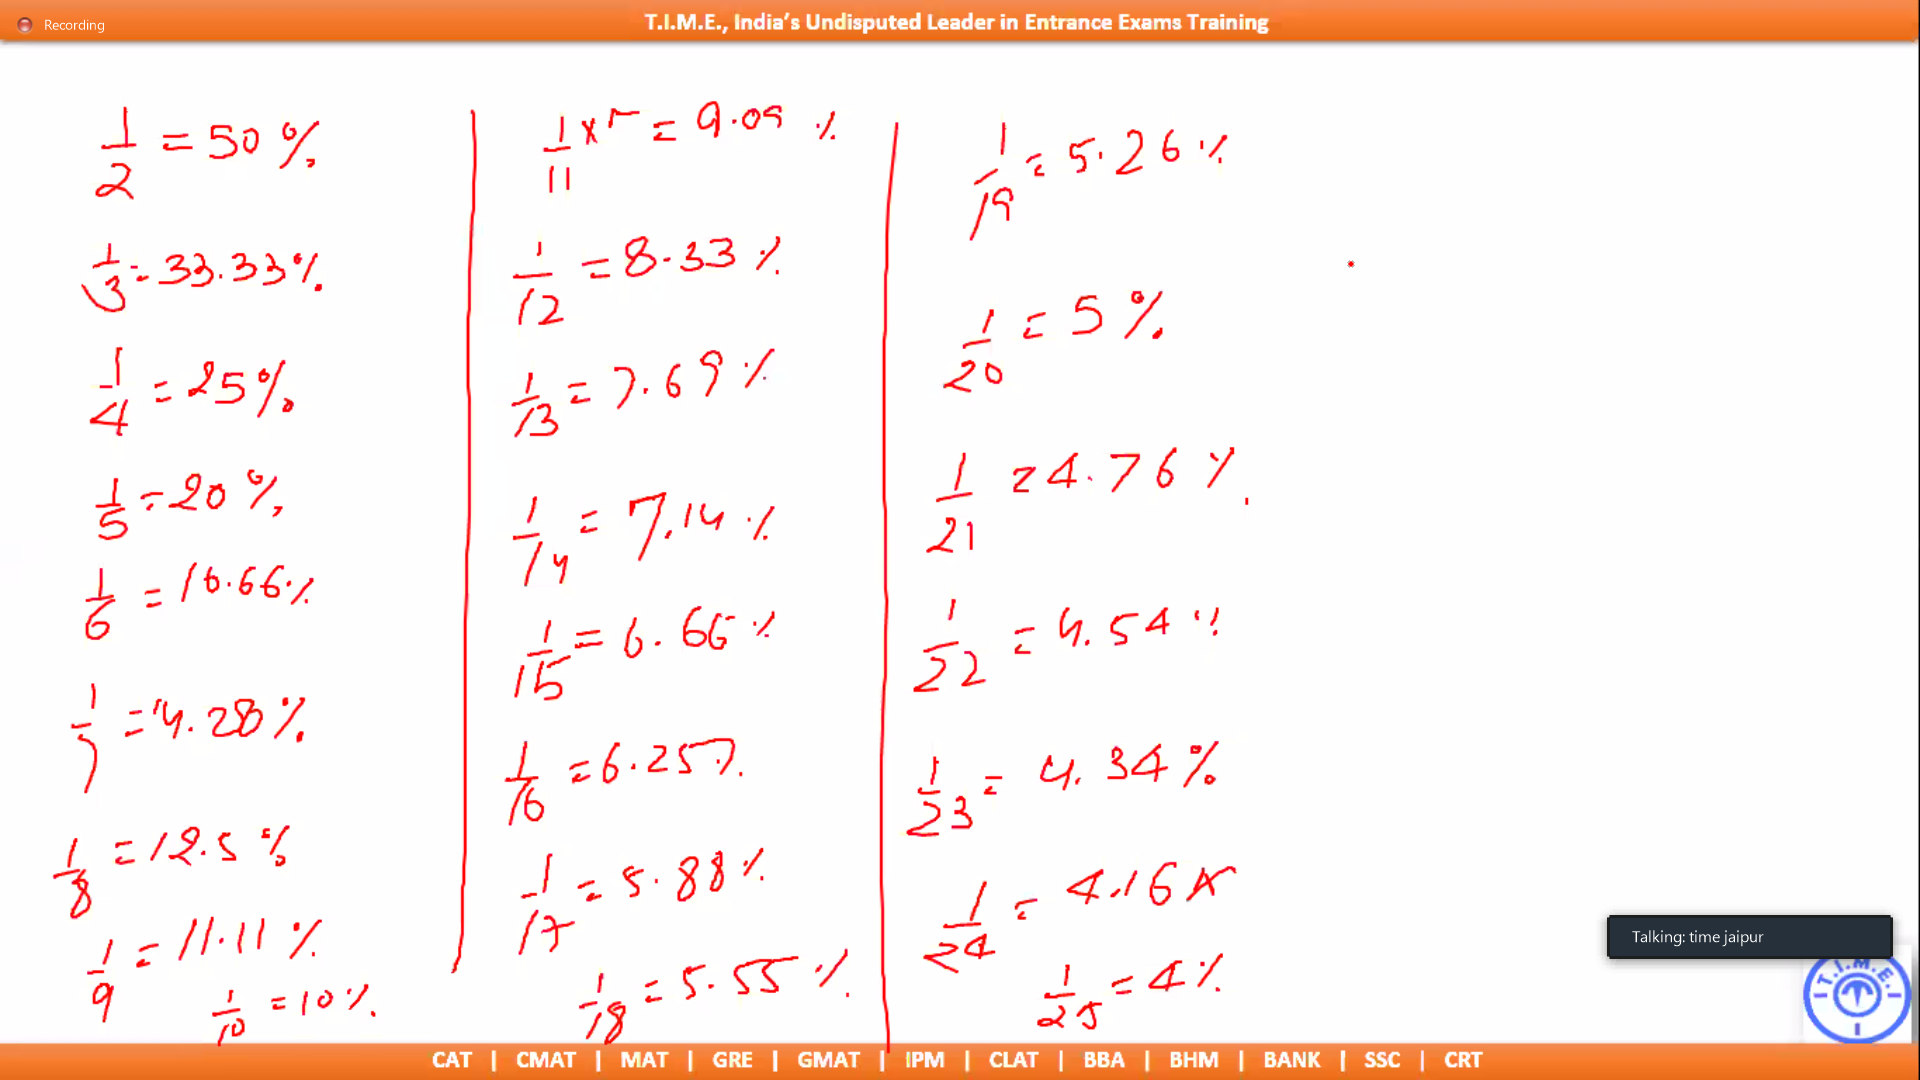 Recording
T.I.M.E., India's Undisputed Leader in Entrance Exams Training
1/2 = 50%
1/3 = 33.33%
1/4 = 25%
1/5 = 20%
1/6 = 16.66%
1/7 = 14.28%
1/8 = 12.5%
1/9 = 11.11%
1/10 = 10%
1/11 × = 9.09%
1/12 = 8.33%
1/13 = 7.69%
1/14 = 7.14%
1/15 = 6.66%
1/16 = 6.25%
1/17 = 5.88%
1/18 = 5.55%
1/19 = 5.26%
1/20 = 5%
1/21 = 4.76%
1/22 = 4.54%
1/23 = 4.34%
1/24 = 4.16%
1/25 = 4%
Talking: time jaipur
T.I.M.E.
CAT | CMAT | MAT | GRE | GMAT | IPM | CLAT | BBA | BHM | BANK | SSC | CRT